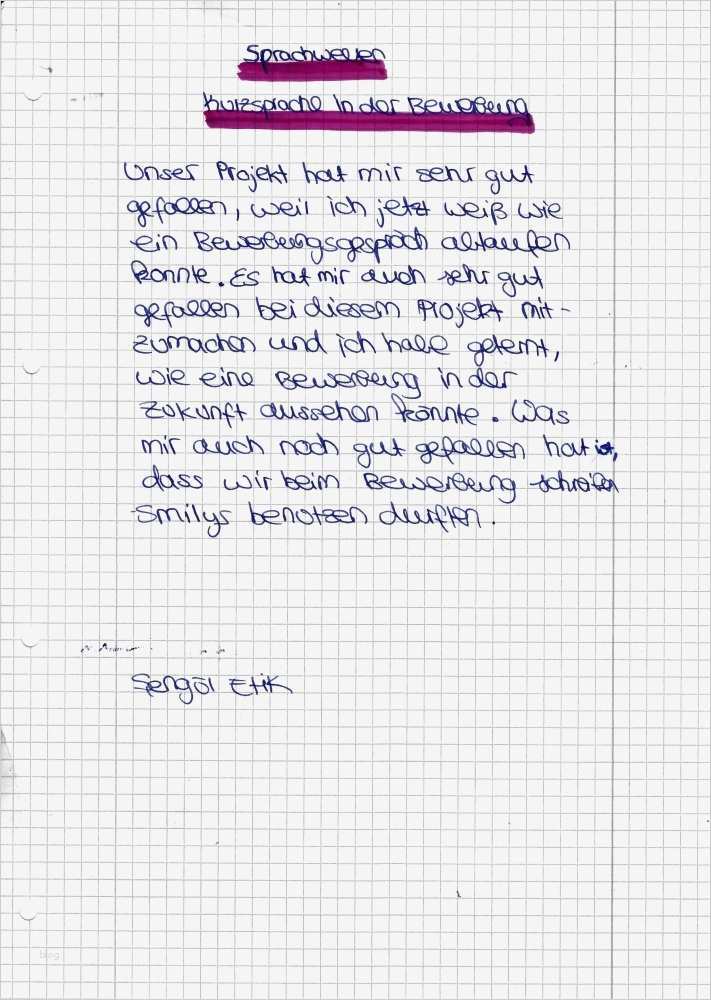 Sprachwellen
Kurzsprache In der Bewerbung
Unser Projekt hat mir sehr gut
gefallen, weil ich jetzt weiß wie
ein Bewerbungsgespräch ablaufen
könnte. Es hat mir auch sehr gut
gefallen bei diesem Projekt mit-
zumachen und ich habe gelernt,
wie eine Bewerbung in der
Zukunft aussehen könnte. Was
mir auch noch gut gefallen hat ist,
dass wir beim Bewerbung schreiben
Smilys benutzen durften.
Sengöl Etik
blog